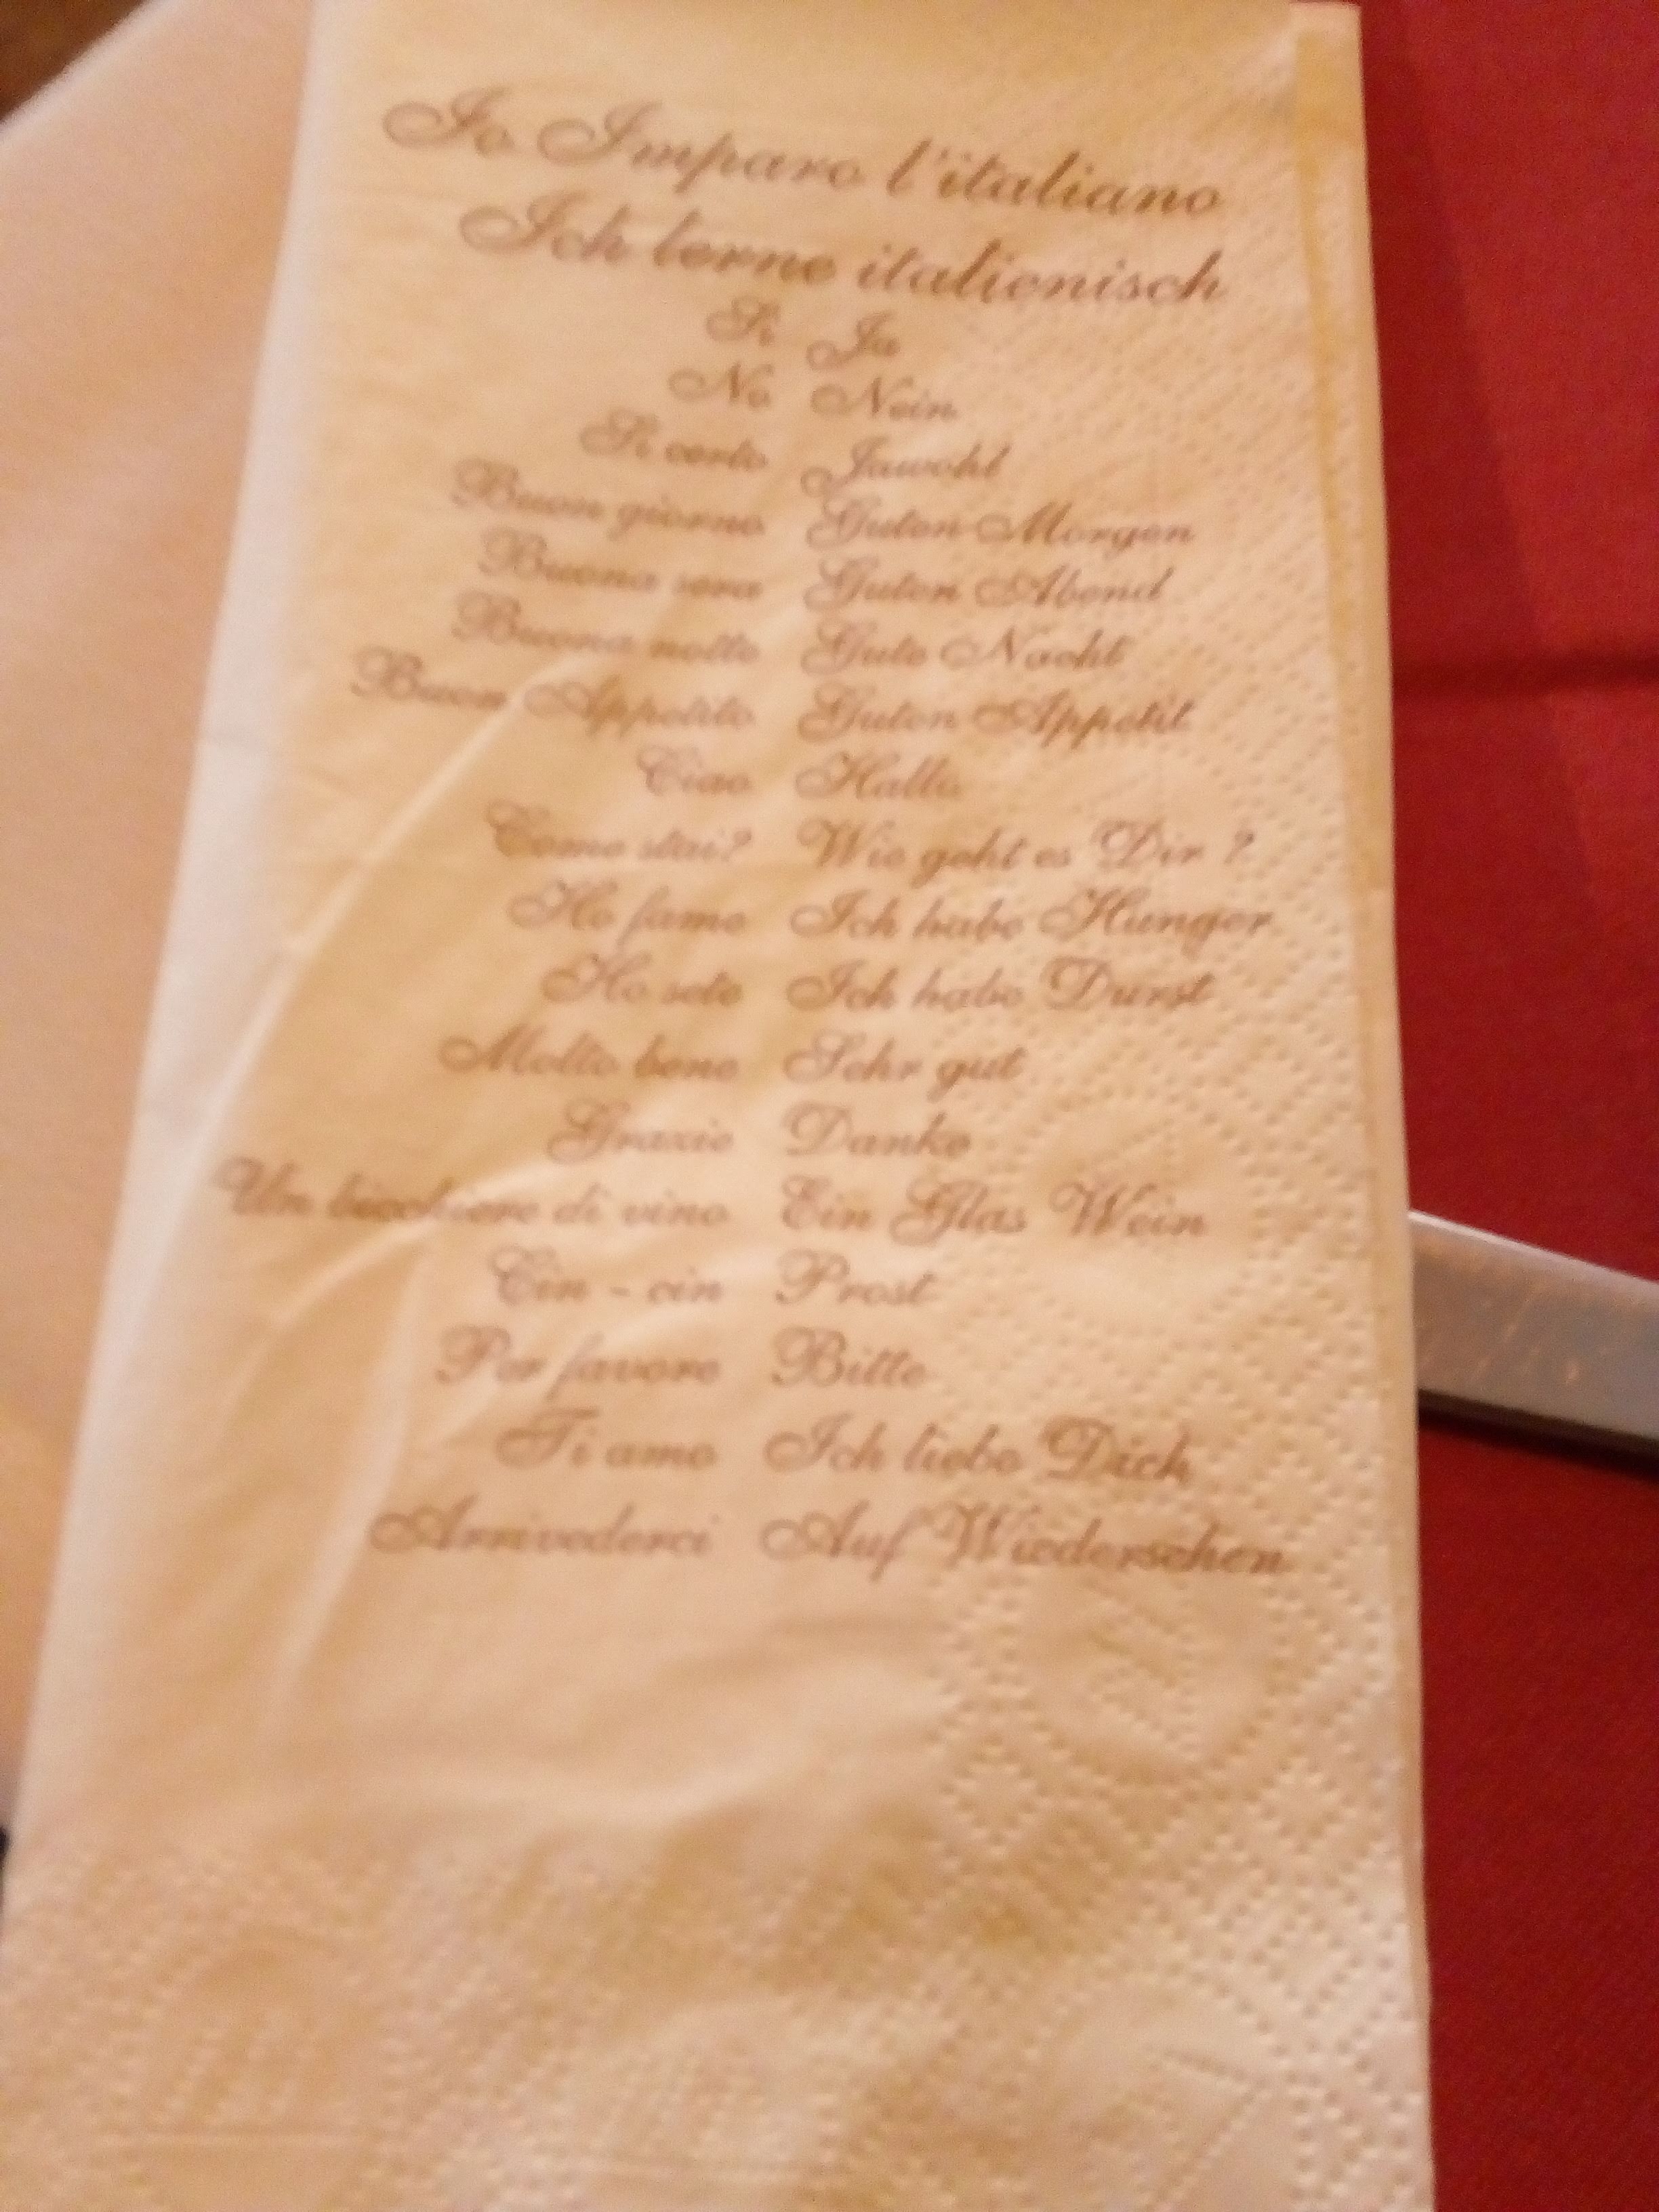 Io Imparo l'italiano
Ich lerne italienisch
Si Ja
No Nein
Si certo Jawohl
Buon giorno Guten Morgen
Buona sera Guten Abend
Buona notte Gute Nacht
Buon Appetito Guten Appetit
Ciao Hallo
Come stai? Wie geht es Dir ?
Ho fame Ich habe Hunger
Ho sete Ich habe Durst
Molto bene Sehr gut
Grazie Danke
Un bicchiere di vino Ein Glas Wein
Cin - cin Prost
Per favore Bitte
Ti amo Ich liebe Dich
Arrivederci Auf Wiedersehen